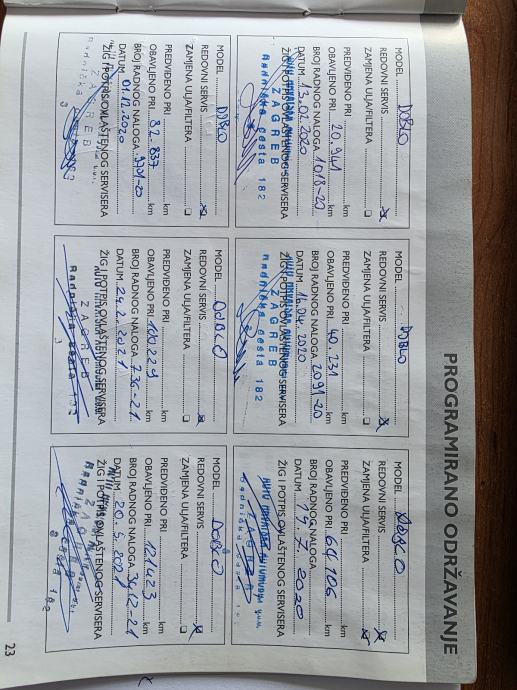 PROGRAMIRANO ODRŽAVANJE
MODEL DOBLO
REDOVNI SERVIS X
ZAMJENA ULJA/FILTERA
PREDVIĐENO PRI km
OBAVLJENO PRI 20.941 km
BROJ RADNOG NALOGA 1018-20
DATUM 13.02.2020
ŽIG I POTPIS OVLAŠTENOG SERVISERA
ZAGREB
Radnička cesta 182
MODEL DOBLO
REDOVNI SERVIS X
ZAMJENA ULJA/FILTERA
PREDVIĐENO PRI km
OBAVLJENO PRI 40.231 km
BROJ RADNOG NALOGA 2091-20
DATUM 16.04.2020
ŽIG I POTPIS OVLAŠTENOG SERVISERA
ZAGREB
Radnička cesta 182
MODEL DOBLO
REDOVNI SERVIS X
ZAMJENA ULJA/FILTERA X
PREDVIĐENO PRI km
OBAVLJENO PRI 64 106 km
BROJ RADNOG NALOGA
DATUM 17.7.2020
ŽIG I POTPIS OVLAŠTENOG SERVISERA
MODEL DOBLO
REDOVNI SERVIS X
ZAMJENA ULJA/FILTERA
PREDVIĐENO PRI km
OBAVLJENO PRI 82.837 km
BROJ RADNOG NALOGA
DATUM 01.12.2020
ŽIG I POTPIS OVLAŠTENOG SERVISERA
ZAGREB
Radnička
MODEL DOBLO
REDOVNI SERVIS X
ZAMJENA ULJA/FILTERA
PREDVIĐENO PRI km
OBAVLJENO PRI km
BROJ RADNOG NALOGA 736-21
DATUM 24.2.2021
ŽIG I POTPIS OVLAŠTENOG SERVISERA
ZAGREB
MODEL DOBLO
REDOVNI SERVIS X
ZAMJENA ULJA/FILTERA
PREDVIĐENO PRI km
OBAVLJENO PRI 121423 km
BROJ RADNOG NALOGA
DATUM 20.5.2021
ŽIG I POTPIS OVLAŠTENOG SERVISERA
23